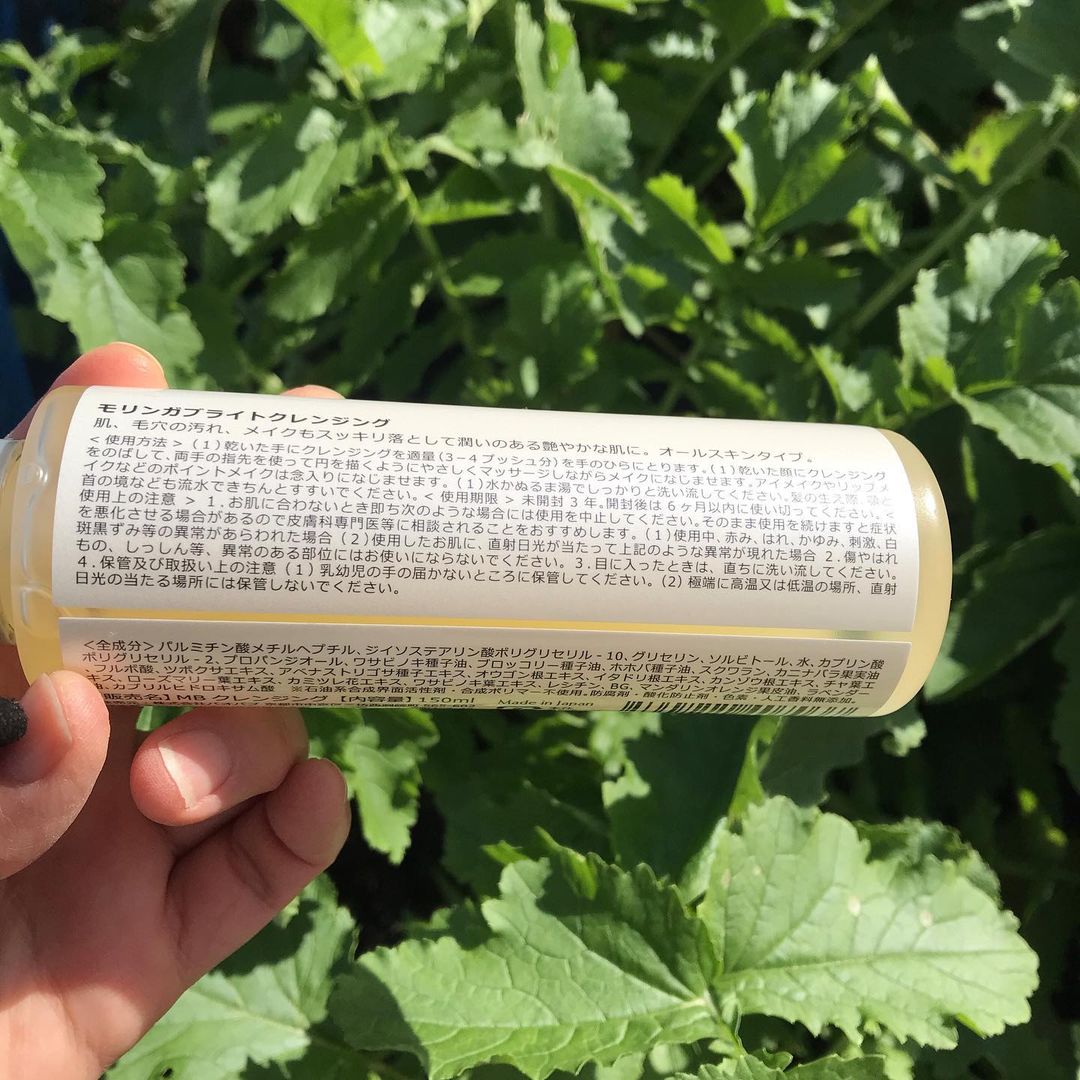 モリンガブライトクレンジング
肌、毛穴の汚れ、メイクもスッキリ落として潤いのある艶やかな肌に。オールスキンタイプ。
<使用方法>(1)乾いた手にクレンジングを適量(3−4プッシュ分)を手のひらにとります。(1)乾いた顔にクレンジング
をのばして、両手の指先を使って円を描くようにやさしくマッサージしながらメイクになじませます。アイメイクやリップメ
イクなどのポイントメイクは念入りになじませます。(1)水かぬるま湯でしっかりと洗い流してください。髪の生え際、顎と
首の境なども流水できちんとすすいでください。<使用期限>未開封3年。開封後は6ヶ月以内に使い切ってください。<
使用上の注意>1.お肌に合わないとき即ち次のような場合には使用を中止してください。そのまま使用を続けますと症状
を悪化させる場合があるので皮膚科専門医等に相談されることをおすすめします。(1)使用中、赤み、はれ、かゆみ、刺激、白
斑黒ずみ等の異常があらわれた場合(2)使用したお肌に、直射日光が当たって上記のような異常が現れた場合 2.傷やはれ
もの、しっしん等、異常のある部位にはお使いにならないでください。3.目に入ったときは、直ちに洗い流してください。
4.保管及び取扱い上の注意(1)乳幼児の手の届かないところに保管してください。(2)極端に高温又は低温の場所、直射
日光の当たる場所には保管しないでください。
<全成分>パルミチン酸メチルヘプチル、ジイソステアリン酸ポリグリセリル-10、グリセリン、ソルビトール、水、カプリン酸
ポリグリセリル-2、プロパンジオール、ワサビノキ種子油、ブロッコリー種子油、ホホバ種子油、スクワラン、カーナパラ果実油
、フルボ酸、ツボクサエキス、アベナストリゴサ種子エキス、オウゴン根エキス、イタドリ根エキス、カンゾウ根エキス、チャ葉エ
キス、ローズマリー葉エキス、カミツレ花エキス、ワサビノキ葉エキス、レシチン、BG、マンダリンオレンジ果皮油、ラベンダー
油、カプリルヒドロキサム酸 ※石油系合成界面活性剤・合成ポリマー不使用。防腐剤・酸化防止剤・色素・人工香料無添加。
販売名】MBクレンジング【内容量】150ml Made in Japan